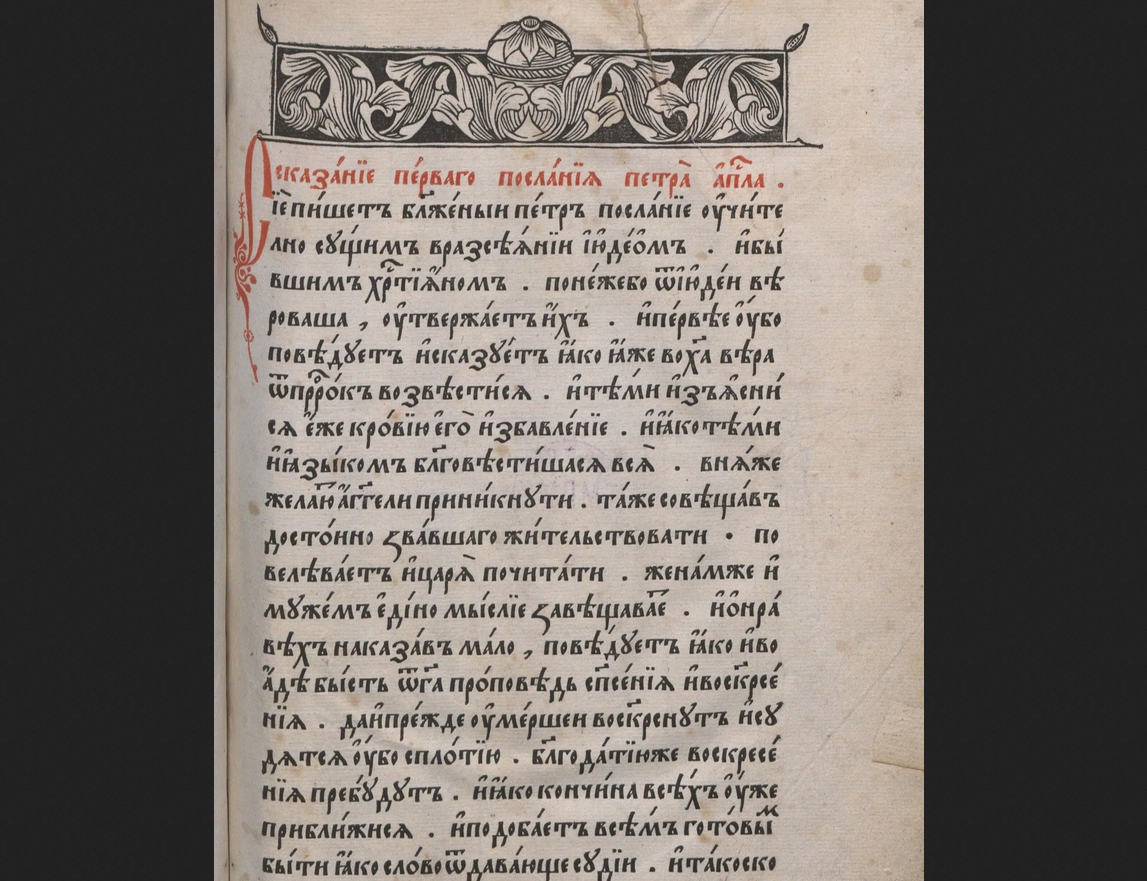 сказа́нїе пе́рваго посла́нїѧ петра̀ а҆пⷭ҇ла .
Сїѐ пи́шетъ бл҃же́ныи пе́тръ посла́нїе ᲂу҆чи́те
лно сꙋ́щимъ вразсѣѧ́нїи і҆ю҆де́ѡмъ . и҆бы́
вшимъ хрⷭ҇тїѧ́номъ . поне́жебо ѿі҆ю҆де́и вѣ
роваша , ᲂу҆твержа́етъ и҆́хъ . и҆пе́рвѣе ᲂу҆́бо
повѣ́дꙋетъ и҆сказꙋ́етъ ꙗ҆́ко ꙗ҆́же вохⷭ҇а̀ вѣ́ра
ѿпрⷪ҇ро́къ возвѣсти́сѧ . и҆тѣ́ми и҆зъѧсни́
сѧ є҆́же кро́вїю є҆гѡ̀ и҆збавле́нїе . и҆ꙗ҆́котѣ́ми
и҆ꙗ҆зы́комъ бл҃говѣсти́шасѧ всѧ̀ . внѧ́же
жела́ютⷭ҇ а҆́гг҃ели прини́кнꙋти . та́же совѣща́въ
досто́йно ꙁва́вшаго жи́тельствовати . по
велѣва́етъ и҆царѧ̀ почита́ти . жена́мже и҆
мꙋже́мъ є҆ди́но мы́слїе ꙁавѣщава́е . и҆ѡ҆нра́
вѣхъ наказа́въ ма́ло , повѣ́дꙋетъ ꙗ҆́ко и҆во
а҆́дѣ бы́сть ѿгⷭ҇а про́повѣдь сп҃се́нїѧ и҆воскр҃се́
нїѧ . даи҆пре́жде ᲂу҆ме́ршеи воскр҃снꙋтъ и҆сꙋ
дѧтсѧ ᲂу҆́бо спло́тїю . бл҃года́тїюже воскресе́
нїѧ пребꙋ́дꙋтъ . и҆ꙗ҆́ко кончи́на всѣ́хъ ᲂу҆́же
прибли́жисѧ . и҆подоба́етъ всѣ́мъ гото́выⷨ
бы́ти ꙗ҆́ко сло́во ѿдава́юще сꙋдїѝ . и҆та́коско